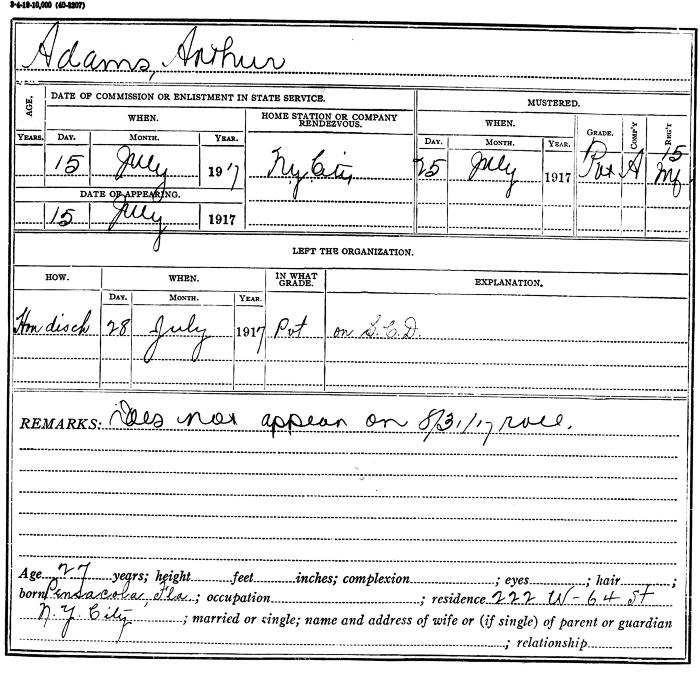 3-4-19-10,000 (40-2207)
Adams, Arthur
AGE. DATE OF COMMISSION OR ENLISTMENT IN STATE SERVICE. MUSTERED.
WHEN. HOME STATION OR COMPANY RENDEZVOUS. WHEN. GRADE. COMP'Y REG'T
YEARS. DAY. MONTH. YEAR. DAY. MONTH. YEAR.
15 July 1917 Ny City 25 July 1917 Pvt A 15 Inf
DATE OF APPEARING.
15 July 1917
LEFT THE ORGANIZATION.
HOW. WHEN. IN WHAT GRADE. EXPLANATION.
DAY. MONTH. YEAR.
Hon disch 28 July 1917 Pvt on S.C.D.
REMARKS: Does not appear on 8/31/17 roll.
Age 27 years; height feet inches; complexion ; eyes ; hair ;
born Pensacola, Fla ; occupation ; residence 222 W-64 St
N.Y. City ; married or single; name and address of wife or (if single) of parent or guardian
; relationship